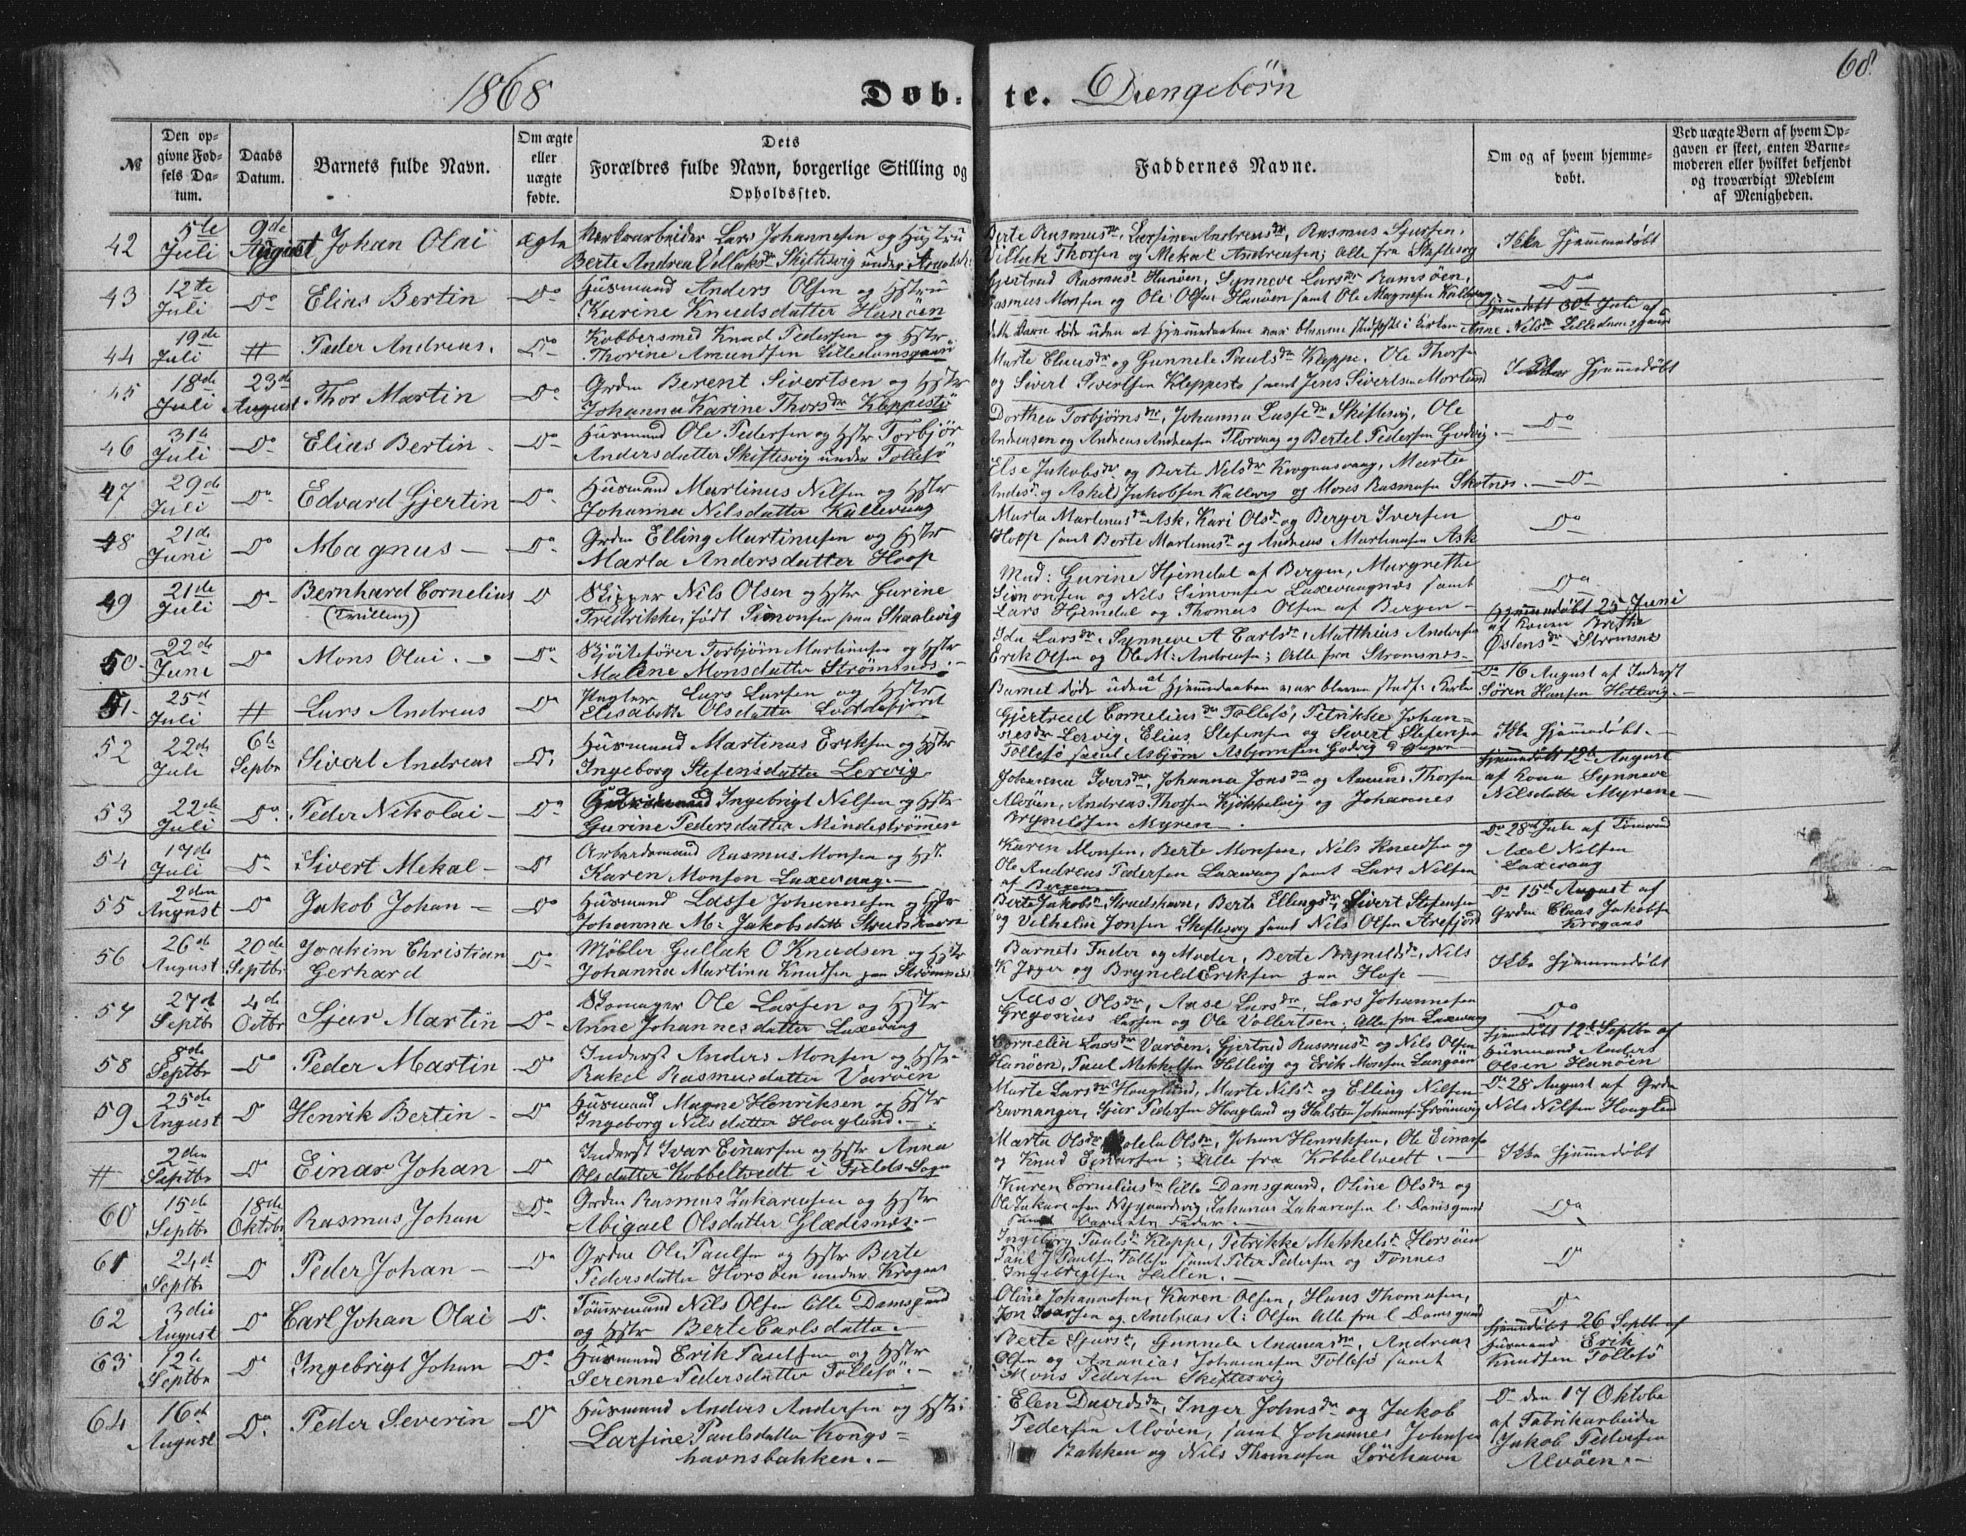 1868 Døb- te. Drengebørn 68.
№ | Den opgivne Fødsels Datum. | Daabs Datum. | Barnets fulde Navn. | Om ægte eller uægte fødte. | Dets Forældres fulde Navn, borgerlige Stilling og Opholdssted. | Faddernes Navne. | Om og af hvem hjemmedøbt. | Ved uægte Børn af hvem Opgaven er skeet, enten Barnemoderen eller hvilket bekjendt og troværdigt Medlem af Menigheden.
42 5te Juli 9de August Johan Olai ægte Lars Johannesen og Hustru
Berte Andrea Skiftesvig under
Berte Rasmusdr, Larsine Andreasdr, Rasmus Sjursen,
Thorsen og Mekal Andreasen; Alle fra Skiftesvig
Ikke Hjemmedøbt
43 12te Juli Do Elias Bertin Do Husmand Anders Olsen og Hstru
Karine Knudsdatter Hanøen
Gjertrud Rasmusd Hanøen, Synneve Larsdr Ramsøen,
Rasmus Monsen og Ole Olsen Hanøen samt Ole Magnesen
Do
44 19de Juli # Peder Andreas. Do Kobbersmed Knud Pedersen og Hstr
Thorine Amundsen Lilledamsgaard
Barn døde uden at Hjemmedaaben var bleven stadfæstet i Kirken
Hjemmedøbt 30te Juli af
Anne Nilsdr Lilledamsgaard
45 18de Juli 23de August Thor Martin Do Grdm Berent Sivertsen og Hstr
Johanna Karine Thorsdr Kleppestø
Marte Clausdr og Gunnele Paulsdr Kleppe, Ole Thorsen
og Sivert Sivertsen Kleppestø samt Jens Sivertsen Morland
Ikke Hjemmedøbt
46 31te Juli Do Elias Bertin Do Husmand Ole Pedersen og Hstr Torbjør
Andersdatter Skiftesvig under Follesø
Dorthea Torbjørnsdr, Johanna Lassedr Skiftesvig, Ole
Andreasen og Andreas Andreasen Florvaag og Bertel Pedersen Godvig
Do
47 29de Juli Do Edvard Gjertin Do Husmand Martinus Nilsen og Hstr
Johanna Nilsdatter Kallevaag
Else Jakobsdr og Berte Nilsdr Krogaasvaag, Marta
og Askild Jakobsen Kallevig og Mons Rasmusen Skotnes.
Do
48 21de Juni Do Magnus Do Grdm Elling Martinusen og Hstr
Marta Andersdatter Hoop
Marta Martinusdr Ask, Kari Olsd og Berger Iversen
Hopp samt Berte Martinusd og Andreas Martinusen Ask
Do
49 21de Juli Do Bernhard Cornelius (Tvilling) Do Skipper Nils Olsen og Hstr Gurine
Fredrikke, født Simonsen paa Skaalevig
Mad: Gurine Hjemdal af Bergen, Margrethe
Simonsen og Nils Simonsen Laxevaagnæs samt
Lars Hjemdal og Thomas Olsen af Bergen
Do
50. 22de Juni Do Mons Olai. Do Torbjørn Martinusen og Hstr
Malene Monsdatter Strømsnes.
Ida Larsdr, Synneve A Carlsdr, Matthias Andersen
Erik Olsen og Ole M: Andreasen; Alle fra Strømsnes
Hjemmedøbt 25 Juni
af Konen Brithe
Østensdr Strømsnes
51. 25d Juli # Lars Andreas Do Pagter Lars Larsen og Hstr
Elisabeth Olsdatter Loddefjord
Barnet døde uden at Hjemmedaaben var bleven stadf: Kirken
Do 16 August af Inderst
Søren Hansen Hetlevig.
52 22de Juli 6te Septbr Sivert Andreas Do Husmand Martinus Eriksen og Hstr
Ingeborg Stefensdatter Lervig
Gjertrud Corneliusdr Follesø, Petrikke Johannesdr Lervig, Elias Stefensen og Sivert Stefensen
Follesø samt Asbjørn Asbjørnsen Godvig
Ikke Hjemmedøbt.
53 22de Juli Do Peder Nikolai Do Ingebrigt Nilsen og Hstr
Gurine Pedersdatter Mindestrømmen
Johanna Iversdr, Johanna Jonsdr og Thorsen
Alvøen, Andreas Thorsen Kjøkkelvig og Johannes
Bryneldsen Myren
Hjemmedøbt 12te August
af Kona Synneve
Nilsdatter Myrene
54 17de Juli Do Sivert Mekal Do Arbeidsmand Rasmus Monsen og Hst.
Karen Monsen Laxevaag.
Karen Monsen, Berte Monsen, Nils Knudsen og
Ole Andreas Pedersen Laxevaag samt Lars Nilsen
af Bergen
Do 28de Juli af Tømmrmd
Axel Nilsen
Laxevaag
55 2den August Do Jakob Johan Do Husmand Lasse Johannesen og Hstr
Johanna M: Jakobsdatt Strudshavn
Berte Jakobsdr Strudshavn, Berte Ellingsdr, Sivert Stefensen
og Vilhelm Jonsen Skiftesvig samt Nils Olsen Arefjord
Do 15de August af
Grdm Claus Jakobsen
Krogaas
56 26de August 20de Septbr Joakim Christian Gerhard Do Møller Gullak O Knudsen og Hstr
Johanna Martina Knudsen paa Strømsnes
Barnets Fader og Moder, Berte Bryneldsdr, Nils
K Jæger og Bryneld Eriksen paa
Ikke Hjemmedøbt
57 27d Septbr 4de Octbr Sjur Martin Do Skomager Ole Larsen og Hstr
Anne Johannesdatter Laxevaag
Aase Olsdr, Aase Larsdr, Lars Johannesen
Gregorius Larsen og Ole Vollertsen; Alle fra Laxevaag
Do
58 8de Septbr Do Peder Martin Do Inderst Anders Monsen og Hstr
Rakel Rasmusdatter Varøen
Cornelia Larsdr Varøen, Gjertrud Rasmusd og Nils Olsen
Hanøen, Paul Mekkelsen Hellevig og Erik Monsen Langøen
Hjemmedøbt 12te Septbr af
Husmand Anders
Olsen Hanøen
59 25de August Do Henrik Bertin Do Husmand Magne Henriksen og Hstr
Ingeborg Nilsdatter Hougland.
Marte Larsdr Hougland, Marte Nilsd og Elling Nilsen
Ravnanger, Pedersen Hougland og Halsten Johannesen
Do 28 August af Grdm
Nils Nilsen Hougland
# 2den Septbr Do Einar Johan Do Inderst Ivar Einarsen og Hstr Anna
Olsdatter Kobbeltvedt i Fjelds Sogn
Marta Olsdr, Olsdr, Johan Henriksen, Ole Einarsen
og Knud Einarsen; Alle fra Kobbeltvedt.
Ikke Hjemmedøbt
60 15de Septbr 18de Oktobr Rasmus Johan Do Grdm Rasmus Zakariasen og Hstr
Abigael Olsdatter Glædesnæs.
Karen Corneliusdr lille Damsgaard, Oline Olsdr og
Ole Zakariasen Nygaardsvig, Johannes Zakariasen l. Damsgaard
samt Barnets Fader.
Do
61 24d Septbr Do Peder Johan Do Grdm Ole Paulsen og Hstr Berte
Pedersdatter Horsøen under Krogaas
Ingeborg Paulsdr Kleppe, Petrikke Mekkelsd Horsøen
Paul J Paulsen Follesø samt Peter Pedersen og Tønnes
Ingebrigtsen Hillen.
Do
62 3die August Do Carl Johan Olai Do Tømmrmand Nils Olsen lille Damsgaard
og Hstr Berte Carlsdatter
Oline Johannesen, Karen Olsen, Hans Thomasen,
Jon Ivarsen og Andreas A: Olsen Alle fra l Damsgaard
Do
63 12te Septbr Do Ingebrigt Johan Do Husmand Erik Paulsen og Hstr
Serenne Pedersdatter Follesø.
Berte Sjursd, Gunnele Ananiasdr, Andreas
Olsen og Ananias Johannesen Follesø samt
Mons Pedersen Skiftesvig
Hjemmedøbt 26 Septbr af
Husmand Erik
Knudsen Follesø
64 16d August Do Peder Severin Do Husmand Anders Andersen og Hstr:
Larsine Paulsdatter Kongshavnsbakken.
Elen Davidsdr, Inger Johnsdr og Jakob
Pedersen Alvøen, samt Johannes Johnsen
Bakken og Nils Thomasen Sørehavn
Do den 17 Oktobe
af Fabrikarbeider
Jakob Pedersen
Alvøen.